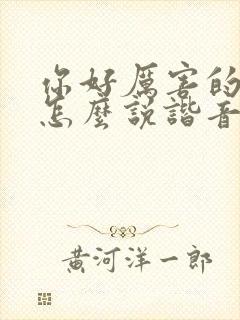 你好厲害的
怎麼說諧音
黃河洋一郎